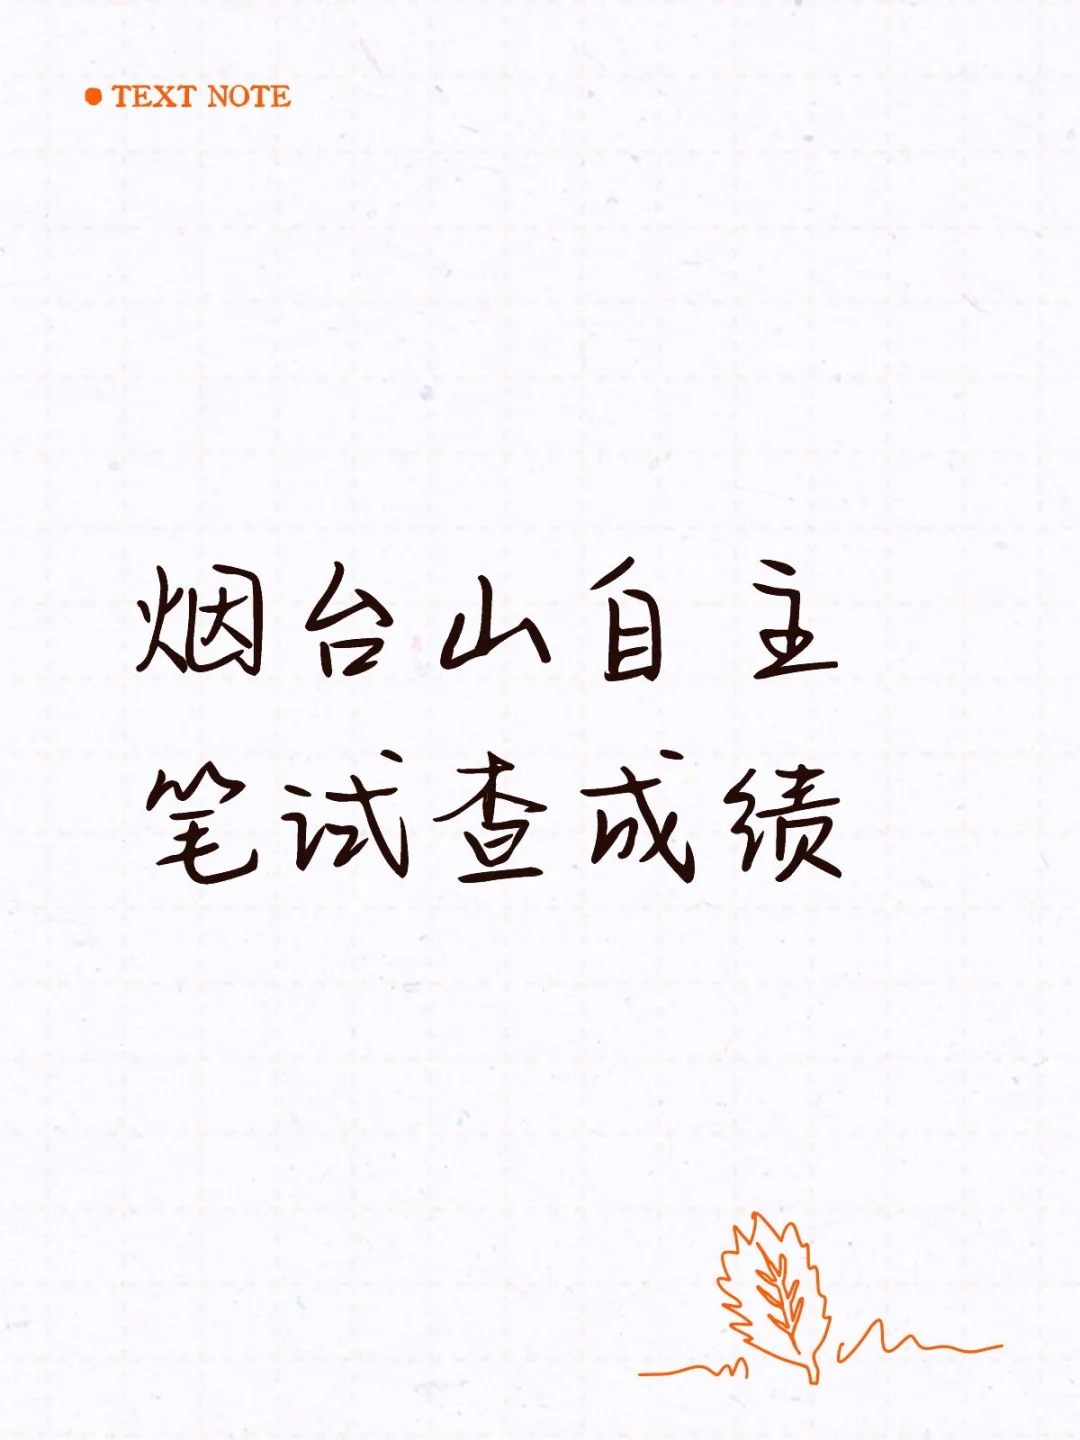 TEXT NOTE
烟台山自主
笔试查成绩